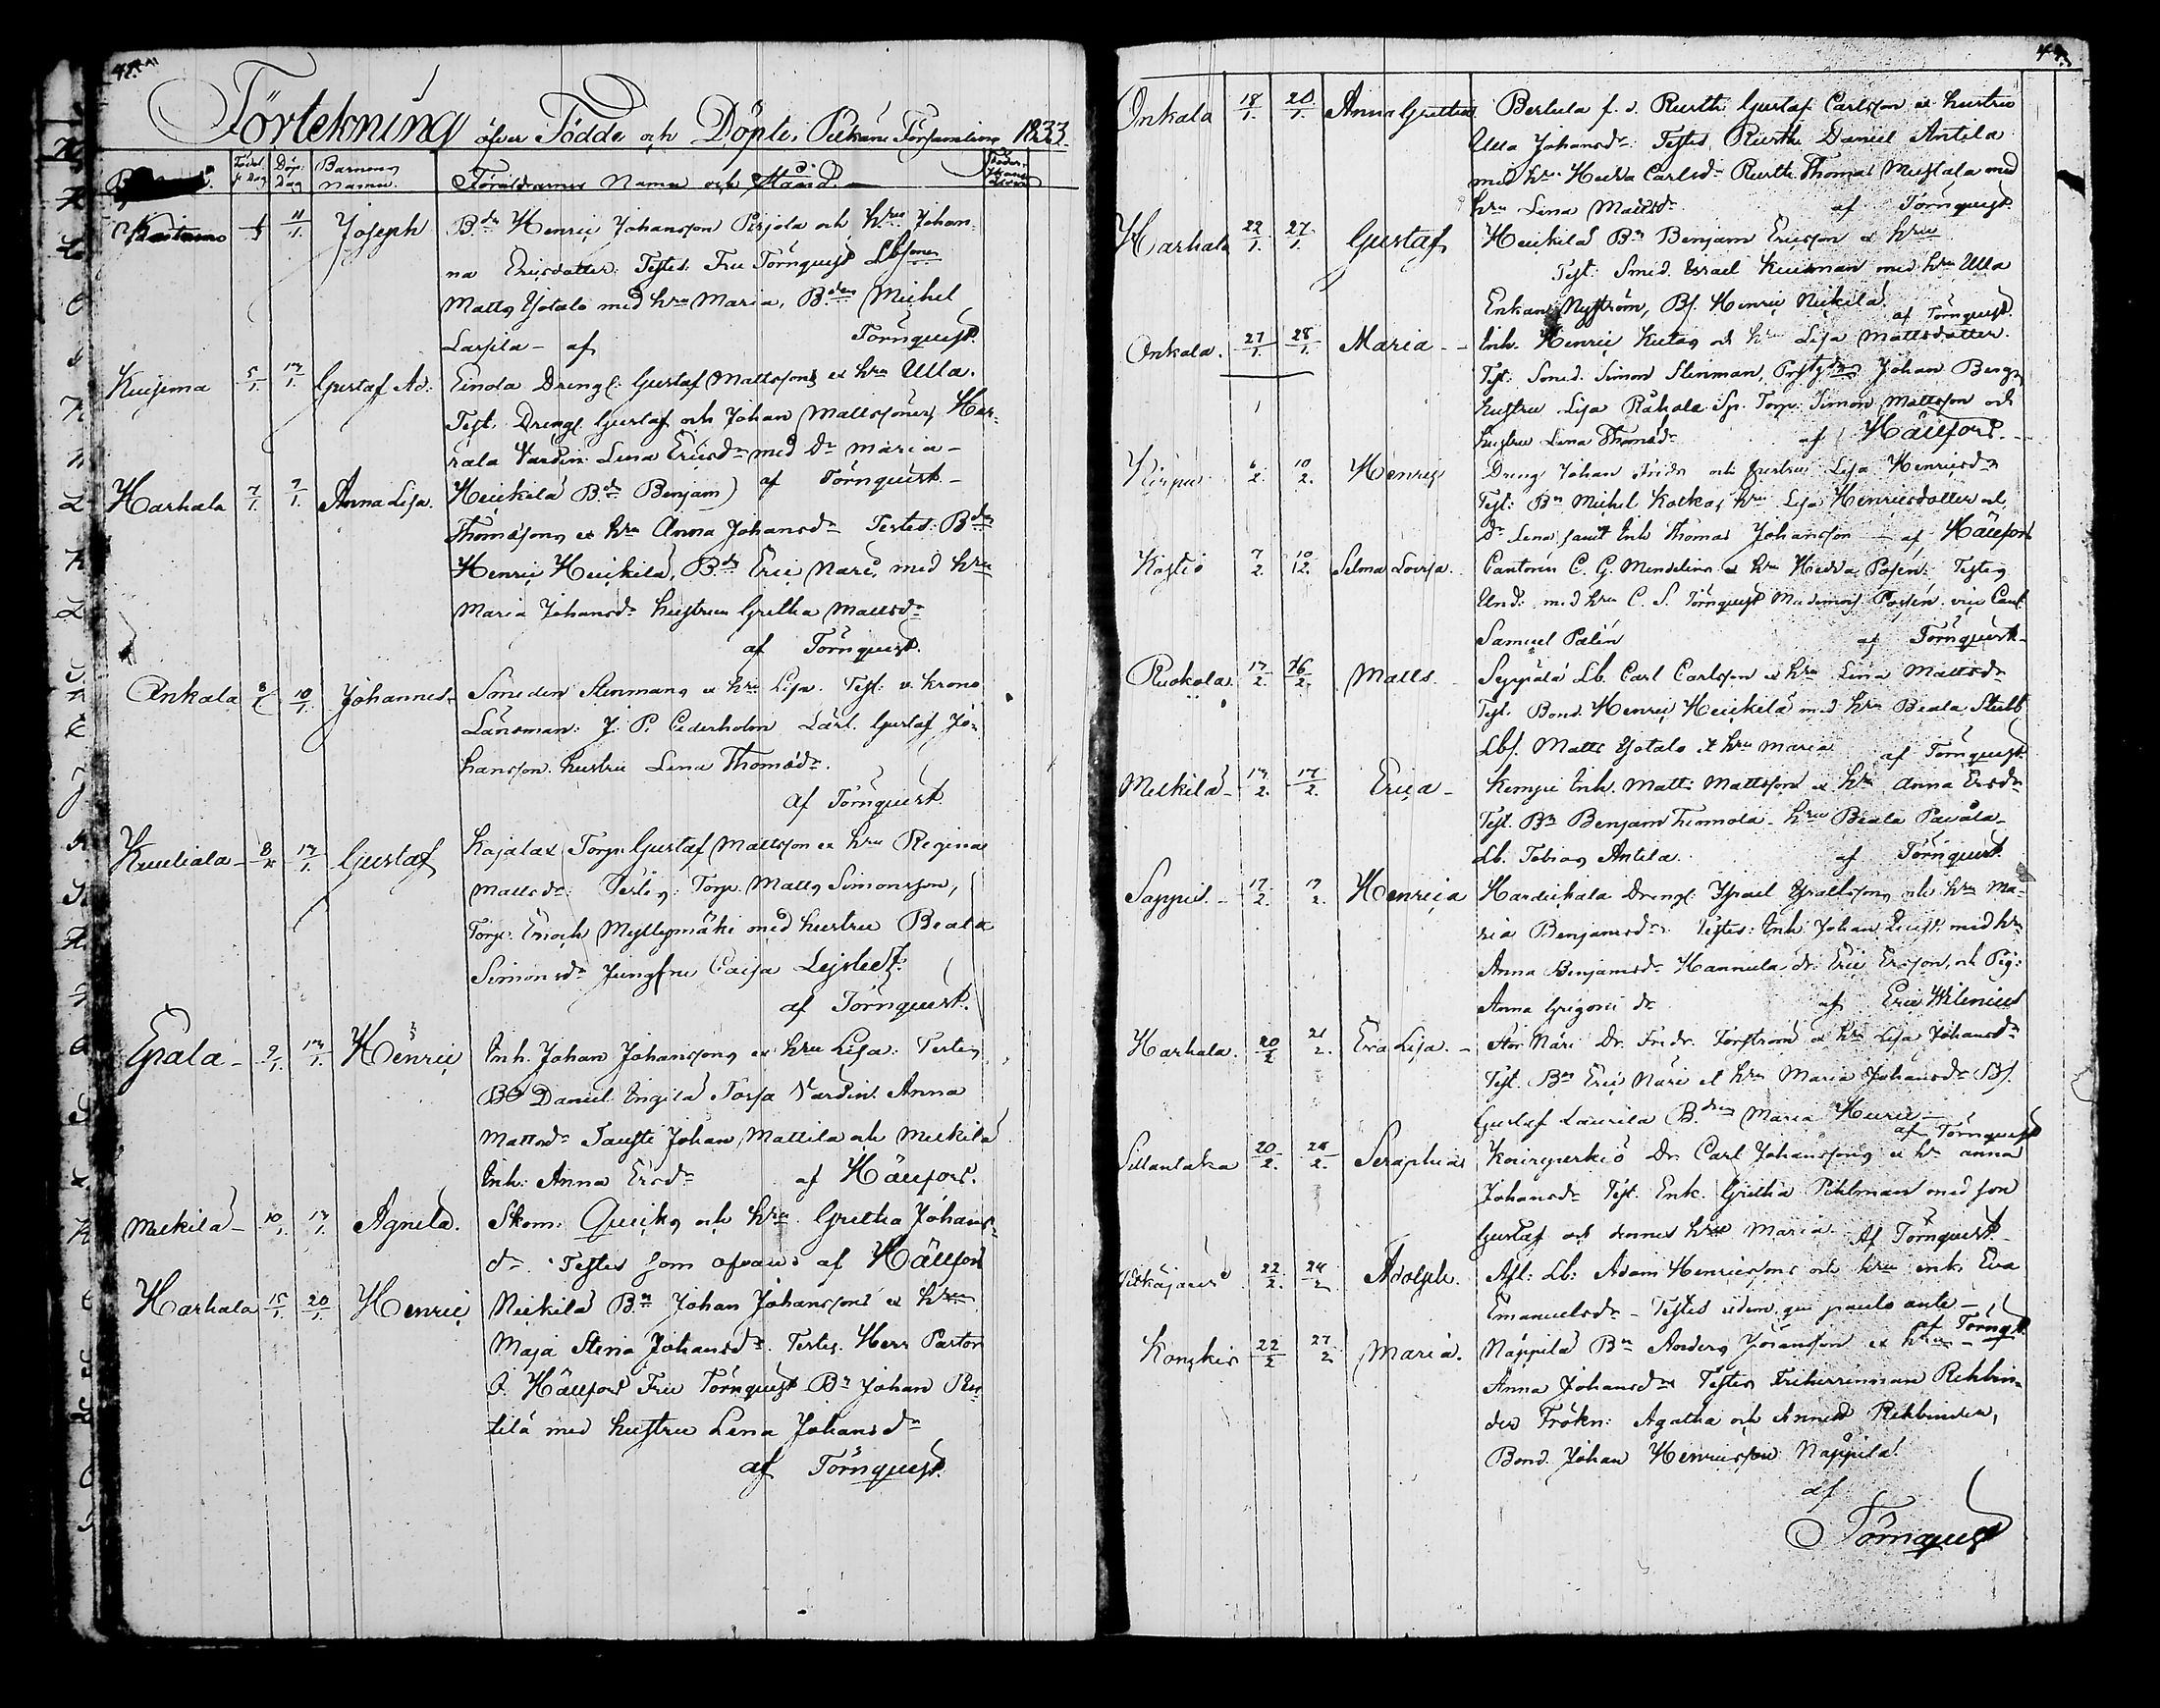 Förtekning öfver Födde och Döpte i Pirkare Församling 1833.
Födel. Dag Döp: dag Barnens namn. Föräldrarnes Namn och Stånd.
11/1. Joseph Bdn Henric Johansson Pirjola och hru Johan-
na Ericsdotter. Testes: Fru Törnquist Lbsone
Matts Yotalo med hru Maria, Bden Michel
Larpila - af Törnquist.
Kuisema 5/1. 13/1. Gustaf Ad: Einola Drengs: Gustaf Mattssons et hru Ulla.
Test. Drengs Gustaf och Johan Mattssoner, Har-
rala Vardin: Lena Ericsdr med Do Maria -
af Törnquist -
Harhala 7/1. 7/1. Anna Lisa. Heickilä Bdn Benjam
Thomasons et hru Anna Johansdr Testes: Bdn
Henric Heickilä, Bdn Eric Näri, med hru
Maria Johansdr hustru Gretha Mattsdr
af Törnquist.
Onkala 8/1 10/1. Johannes. Smeden Stenmans et hru Lisa. Test: v. Krono
Länsman: J. P. Cederholm Lärl. Gustaf Jo-
hansson. hustru Lena Thomasdr.
af Törnquist.
Kuuliala - 8/1 13/1. Gustaf Kajalax Torp. Gustaf Mattsson et hru Regina
Mattsdr: Testes: Torp. Matts Simonsson,
Torp. Enoch Myllymäki med hustru Beata
Simonsdr Jungfru Caisa Lejstedt.
af Törnquist.
Epala - 9/1. 13/1. Henric Inh. Johan Johanssons et hru Lisa: Testes
Bd Daniel Ingilä Torja Vardin: Anna
Mattsdr Johan Mattila och Meckilä
Inh: Anna Ersdr af Hällfors.
Meckilä - 10/1. 13/1. Agneta. Skom: Quicks och hru Gretha Johans-
dr. Testes som ofvan af Hällfors
Harhala 15/1. 20/1. Henric Nickilä Bn Johan Johanssons et hru
Maja Stina Johansdr. Testes. Herr Pastor
J. Hällfors Fru Törnquist Bn Johan Pen-
tilä med hustru Lena Johansdr
af Törnquist.
Onkala 18/1. 20/1. Anna Gretha Bertula f. d. Rusth. Gustaf Carlsson et hustru
Ulla Johansdr: Testes, Rusth. Daniel Antila
med hru Hedda Carlsdr Rusth. Thomas Mustala med
hru Lena Mattsdr af Törnquist.
Harhala 22/1. 27/1. Gustaf Heickilä Bn Benjam Ericsson et hru
Test: Smed. Israel Kuusman med hru Ulla
Enkan Nyström, Bs. Henric Nickilä. af Törnquist.
Onkala. 27/1. 28/1. Maria - Inh. Henric Kutas och hru Lisa Mattsdotter.
Test: Smed. Simon Stenman, Johan Bergs
hustru Lisa Rähala Sp. Torp: Simon Mattsson och
hustru Lena Thomasdr af Hällfors. -
6/2. 10/2. Henric Dreng Johan Fredr. och hustru Lisa Henricsdr
Test: Bn Michel Kolkas hru Lisa Henricsdotter och
Dr Lena samt Inh Thomas Johansson - af Hällfors
Kostio 7/2. 10/12. Selma Lovisa. Cantorn C. G. Mendelins et hru Hedda Posén. Testes
Und: med hru C. S. Törnquist Mademois. Posén. vice Cant.
Samuel Palin af Törnquist -
Ruokola. 13/2. 16/2. Matts. Seppälä Lb. Carl Carlsson et hru Lena Mattsdr
Test. Bond. Henric Heickilä med hru Beata Stubb
Lbs. Matts Yotalo et hru Maria af Törnquist.
Meckilä - 13/2. 17/2. Erica - Kemppi Inh. Matts Mattsson et hru Anna Ersdr
Test. Bn Benjam Tunnola - hru Beata Pavola -
Lb. Tobias Antila. af Törnquist.
Sappis. - 17/2. 19/2. Henrica Hardickala Drengs: Israel Israelssons och hru Ma-
ria Benjamsdr. Testes: Inh: Johan Quist med hru
Anna Benjamsdr Hannula dr: Eric Ersson, och Pig:
Anna Grigori dr af Eric Wilenius
Harhala. 20/2 21/2. Eva Lisa. - Stor Näri Dr. Fredr. Forström et hru Lisa Johansdr
Test. Bn Eric Näri et hru Maria Johansdr Bs.
Gustaf Laurila Bdn Maria -
af Törnquist
Sillantaka 20/2. 24/2. Seraphia Dr. Carl Johanssons et hr Anna
Johansdr Test. Enk. Gretha Pihlman med son
Gustaf och dennes hru Maria. Af Törnquist -
22/2. 24/2 Adolph. Afl: Lb: Adam Henricssons och hru enk. Eva
Emanuelsdr - Testes iidem. qui paulo ante -
af Törnqt.
22/2 27/2 Maria. Näppilä Bn Anders Johansson et hru
Anna Johansdr Testes Friherrinnan Rehbin-
der Frökn: Agatha och Annett Rehbinder,
Bond. Johan Henricsson Näppilä.
af
Törnquist